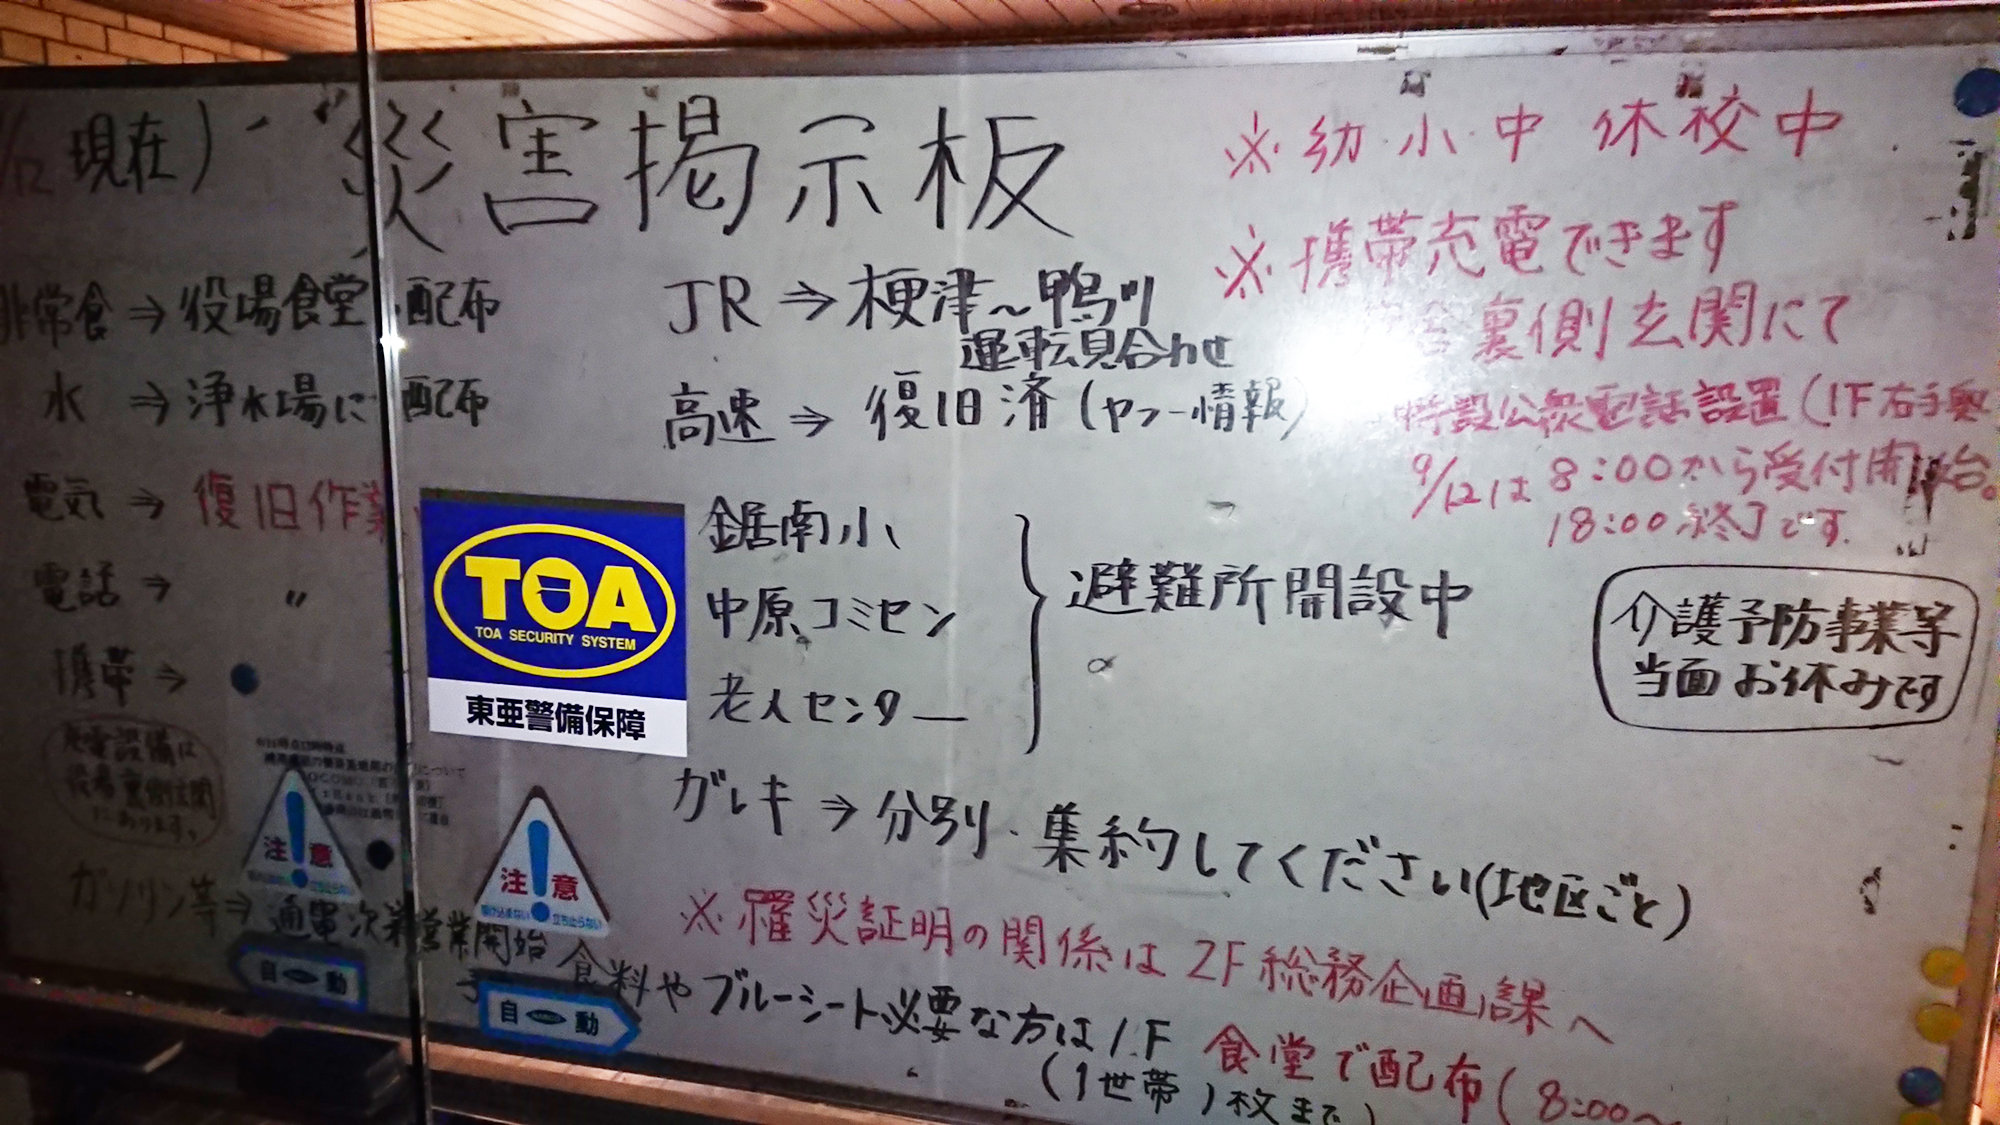 /12 現在)
災害掲示板
非常食⇒役場食堂 配布
水⇒浄水場に 配布
電気⇒復旧作業
電話⇒ 〃
携帯⇒
発電設備は
役場裏側玄関
にあります。
ガソリン等⇒通電次第営業開始
JR⇒梗津〜鴨川
運転見合わせ
高速⇒復旧済(ヤフー情報)
鋸南小
中原コミセン
老人センター
避難所開設中
ガレキ⇒分別・集約してください(地区ごと)
※罹災証明の関係は2F総務企画課へ
食料やブルーシート必要な方は1F 食堂で配布(8:00〜
(1世帯1枚まで)
※幼小中 休校中
※携帯充電できます
裏側玄関にて
特設公衆電話設置(1F右手奥
9/12は8:00から受付開始。
18:00終了です。
介護予防事業等
当面お休みです
TOA
TOA SECURITY SYSTEM
東亜警備保障
注意
立ち止らない
自動
注意
駆け込まない
立ち止らない
自動